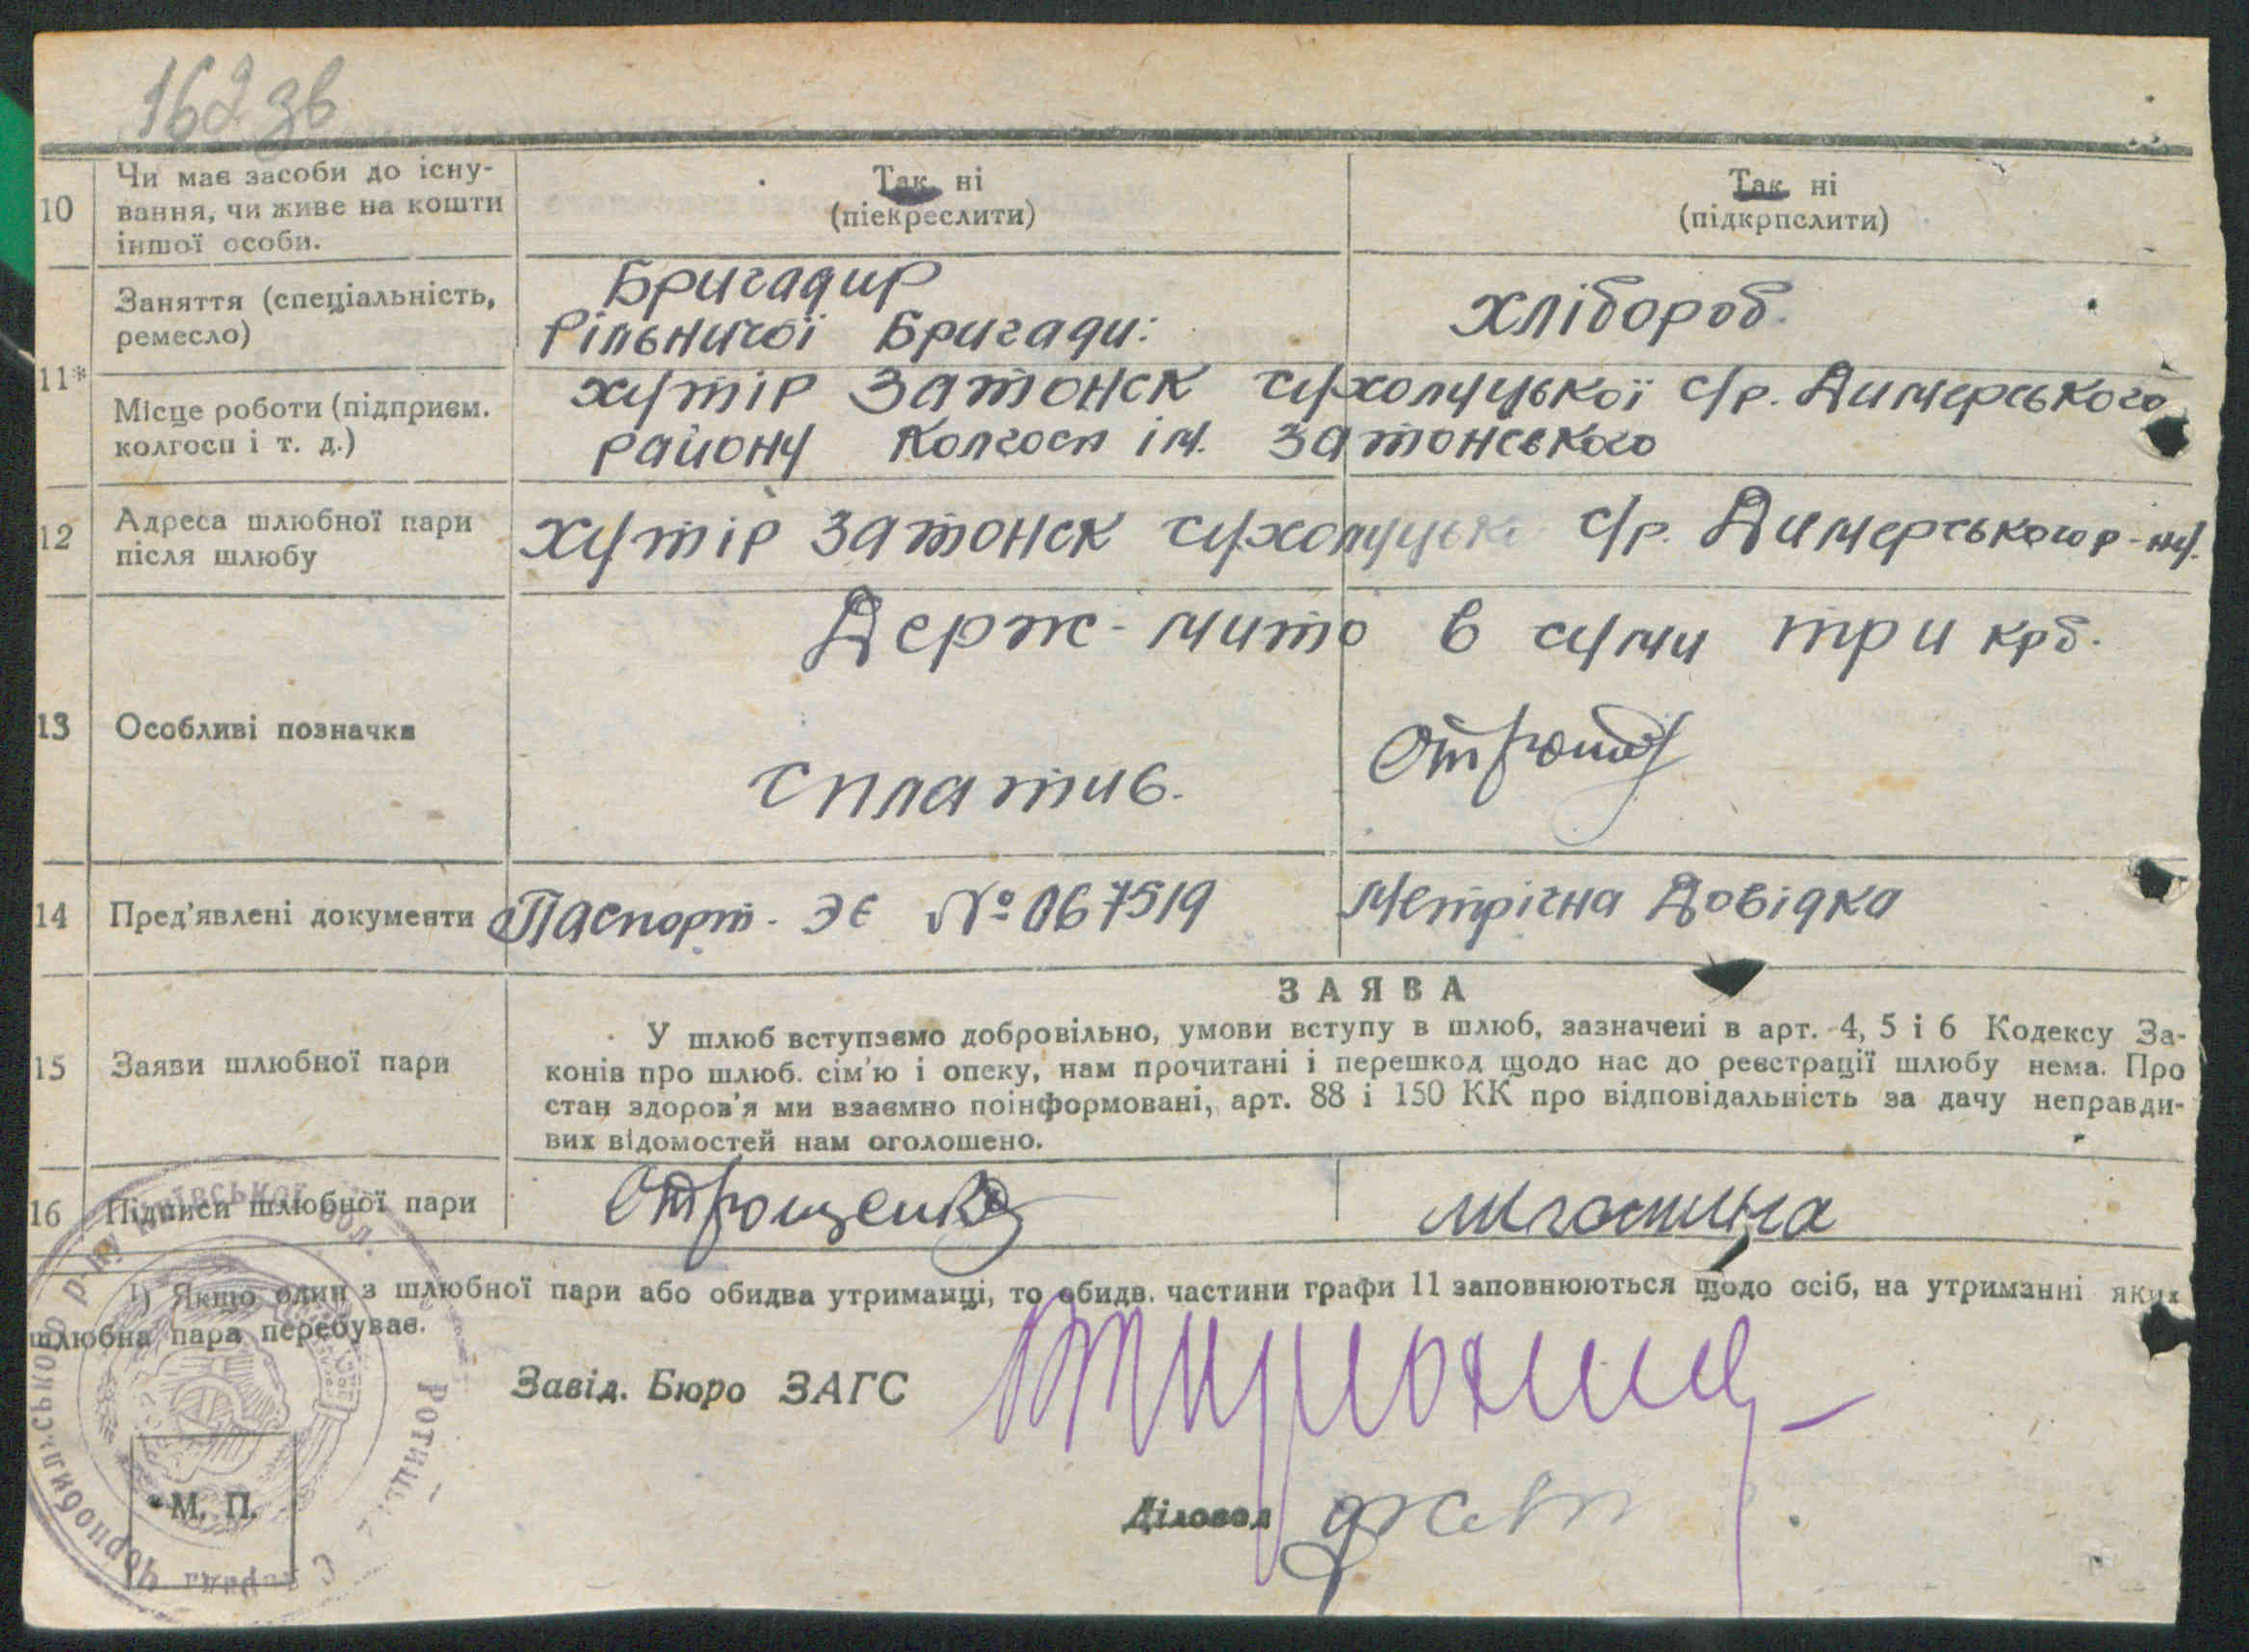 162 зв
10
Чи має засоби до існу-
вання, чи живе на кошти
іншої особи.
Так ні
(піекреслити)
Так ні
(підкрпслити)
11*
Заняття (спеціальність,
ремесло)
Бригадир
Рільничої Бригади:
Хлібороб.
Місце роботи (підприєм.
колгосп і т. д.)
хутір Затонск сухолуцької с/р. Димерського
району Колгосп ім. Затонського
12
Адреса шлюбної пари
після шлюбу
хутір Затонск сухолуцьк с/р. Димерського р-ну.
13
Особливі позначки
Держ-мито в суми три крб.
сплатив.
14
Пред'явлені документи
Паспорт - ЭЄ № 067519
Метрічна Довідка
15
Заяви шлюбної пари
ЗАЯВА
У шлюб вступаємо добровільно, умови вступу в шлюб, зазначені в арт. 4, 5 і 6 Кодексу За-
конів про шлюб. сім'ю і опеку, нам прочитані і перешкод щодо нас до реєстрації шлюбу нема. Про
стан здоров'я ми взаємно поінформовані, арт. 88 і 150 КК про відповідальність за дачу неправди-
вих відомостей нам оголошено.
16
Підписи шлюбної пари
Отрощенко
¹) Якщо один з шлюбної пари або обидва утриманці, то обидв. частини графи 11 заповнюються щодо осіб, на утриманні яких
шлюбна пара перебуває.
Завід. Бюро ЗАГС
Діловод
М. П.
Чорнобильського р-ну Київської обл.